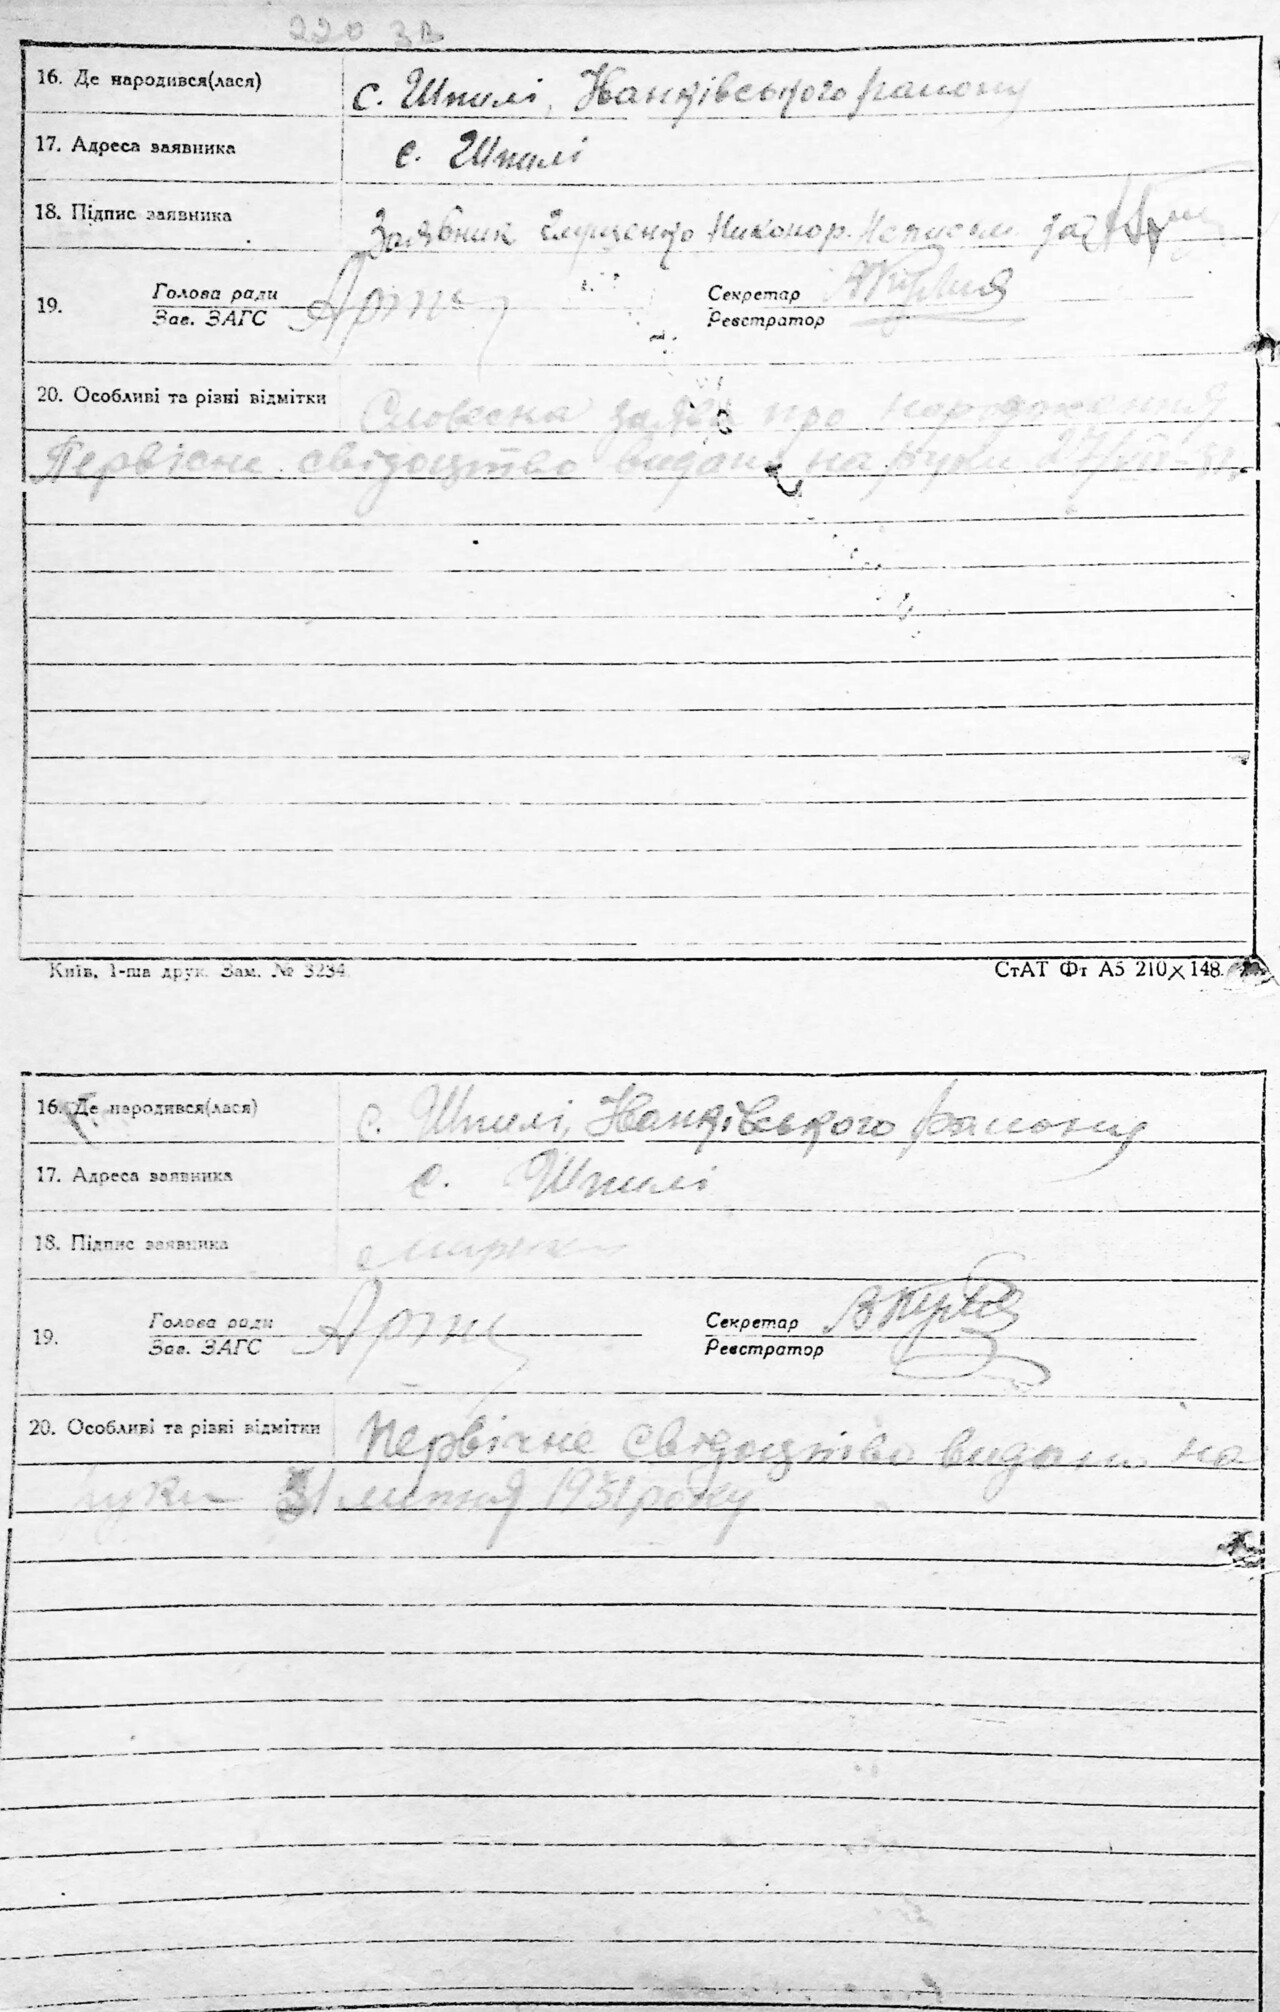 220 зв
16. Де народився(лася) с. Шпилі, Іванківського району
17. Адреса заявника с. Шпилі
18. Підпис заявника Заявник Никонор. за
19. Голова ради Секретар
Зав. ЗАГС Реєстратор
20. Особливі та різні відмітки Словесна заява про народження
Первісне свідоцтво видано на руки 27/VII-31.
Київ, 1-ша друк. Зам. № 3234 СтАТ Фт А5 210×148.
16. Де народився(лася) с. Шпилі, Іванківського району
17. Адреса заявника с. Шпилі
18. Підпис заявника
19. Голова ради Секретар
Зав. ЗАГС Реєстратор
20. Особливі та різні відмітки Первісне свідоцтво видано на
руки 31 липня 1931 року